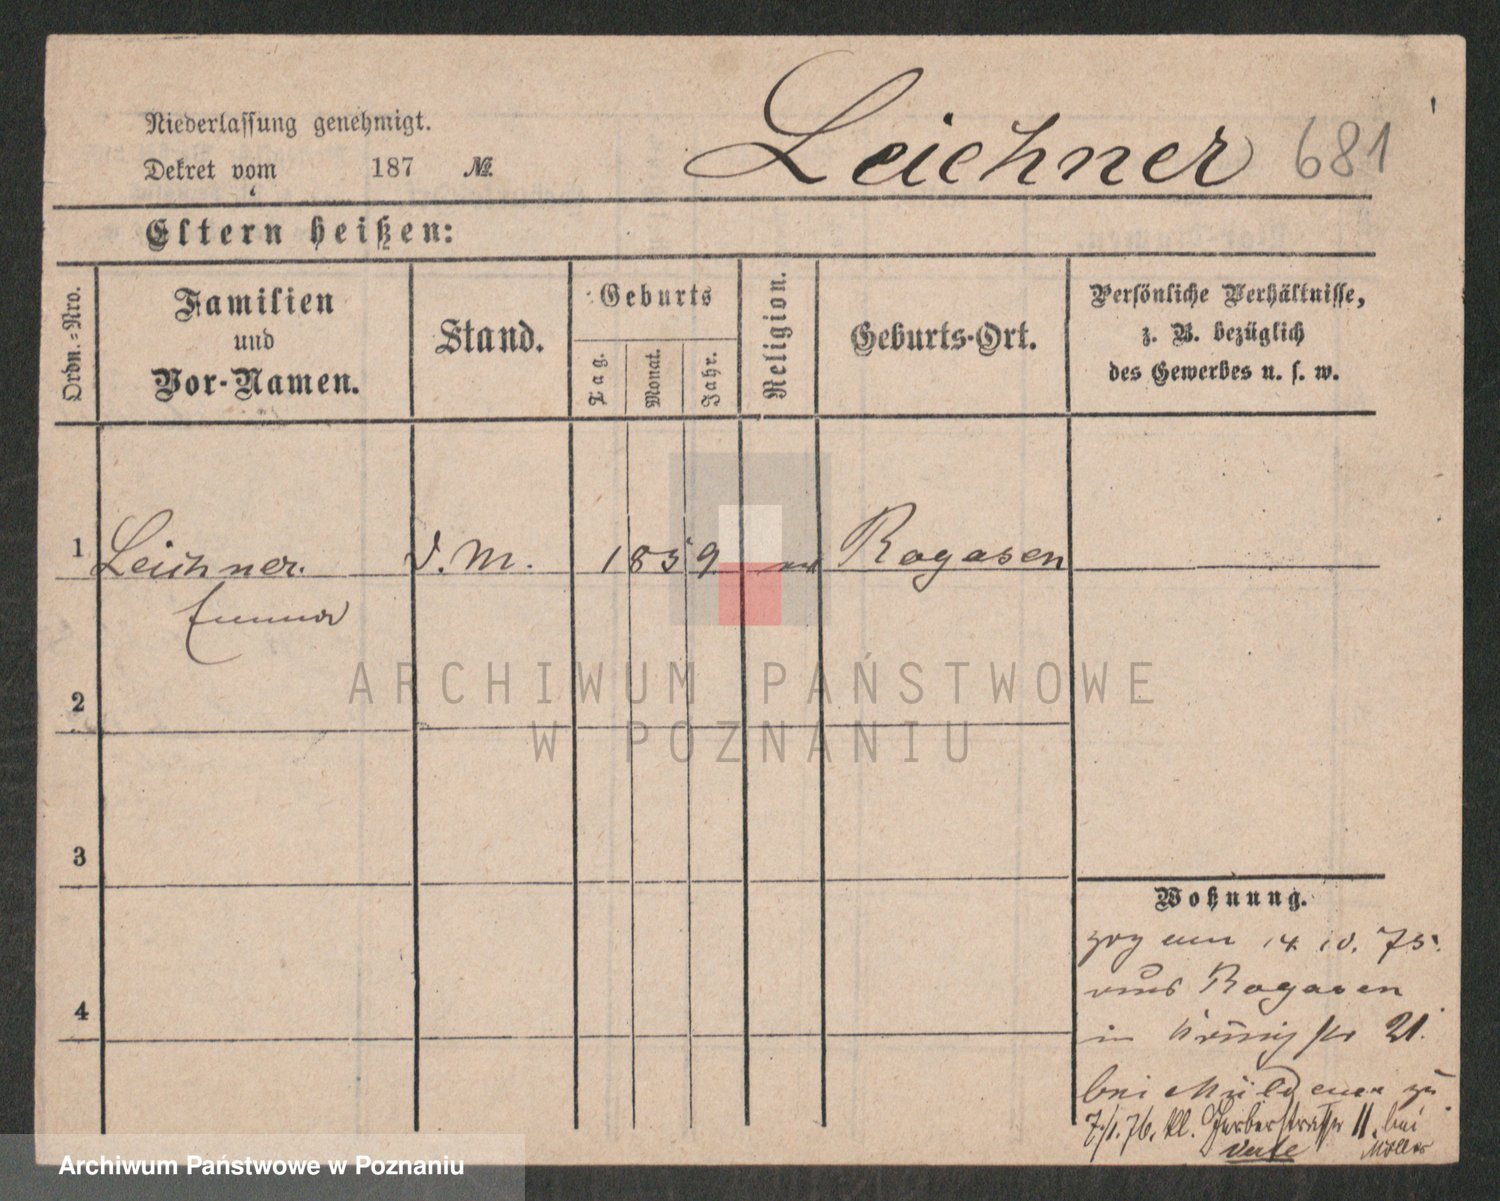 Leichner 681
Niederlassung genehmigt.
Dekret vom 187 №
Eltern heißen:
Ordn.-Nro.
Familien
und
Vor-Namen.
Stand.
Geburts
Tag.
Monat.
Jahr.
Religion.
Geburts-Ort.
Persönliche Verhältnisse,
z. B. bezüglich
des Gewerbes u. s. w.
1 Leichner D. M. 1859 Rogasen
Emma
2
3
4
Wohnung.
zog am 14 10. 75.
aus Rogasen
in König str 21.
bei zu
7./1. 76. kl. Gerberstraße 11. bei
Möller
ARCHIWUM PAŃSTWOWE
W POZNANIU
Archiwum Państwowe w Poznaniu